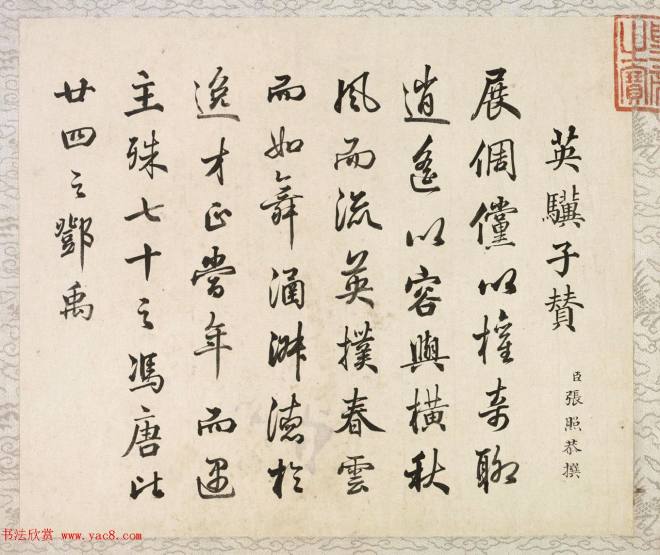 英驥子賛
臣張照恭撰
展倜儻以權奇聊
逍遙以容與橫秋
風而流英撲春雲
而如舞涵淑德於
逸才正當年而遇
主殊七十之馮唐比
廿四之鄧禹
书法欣赏 www.yac8.com